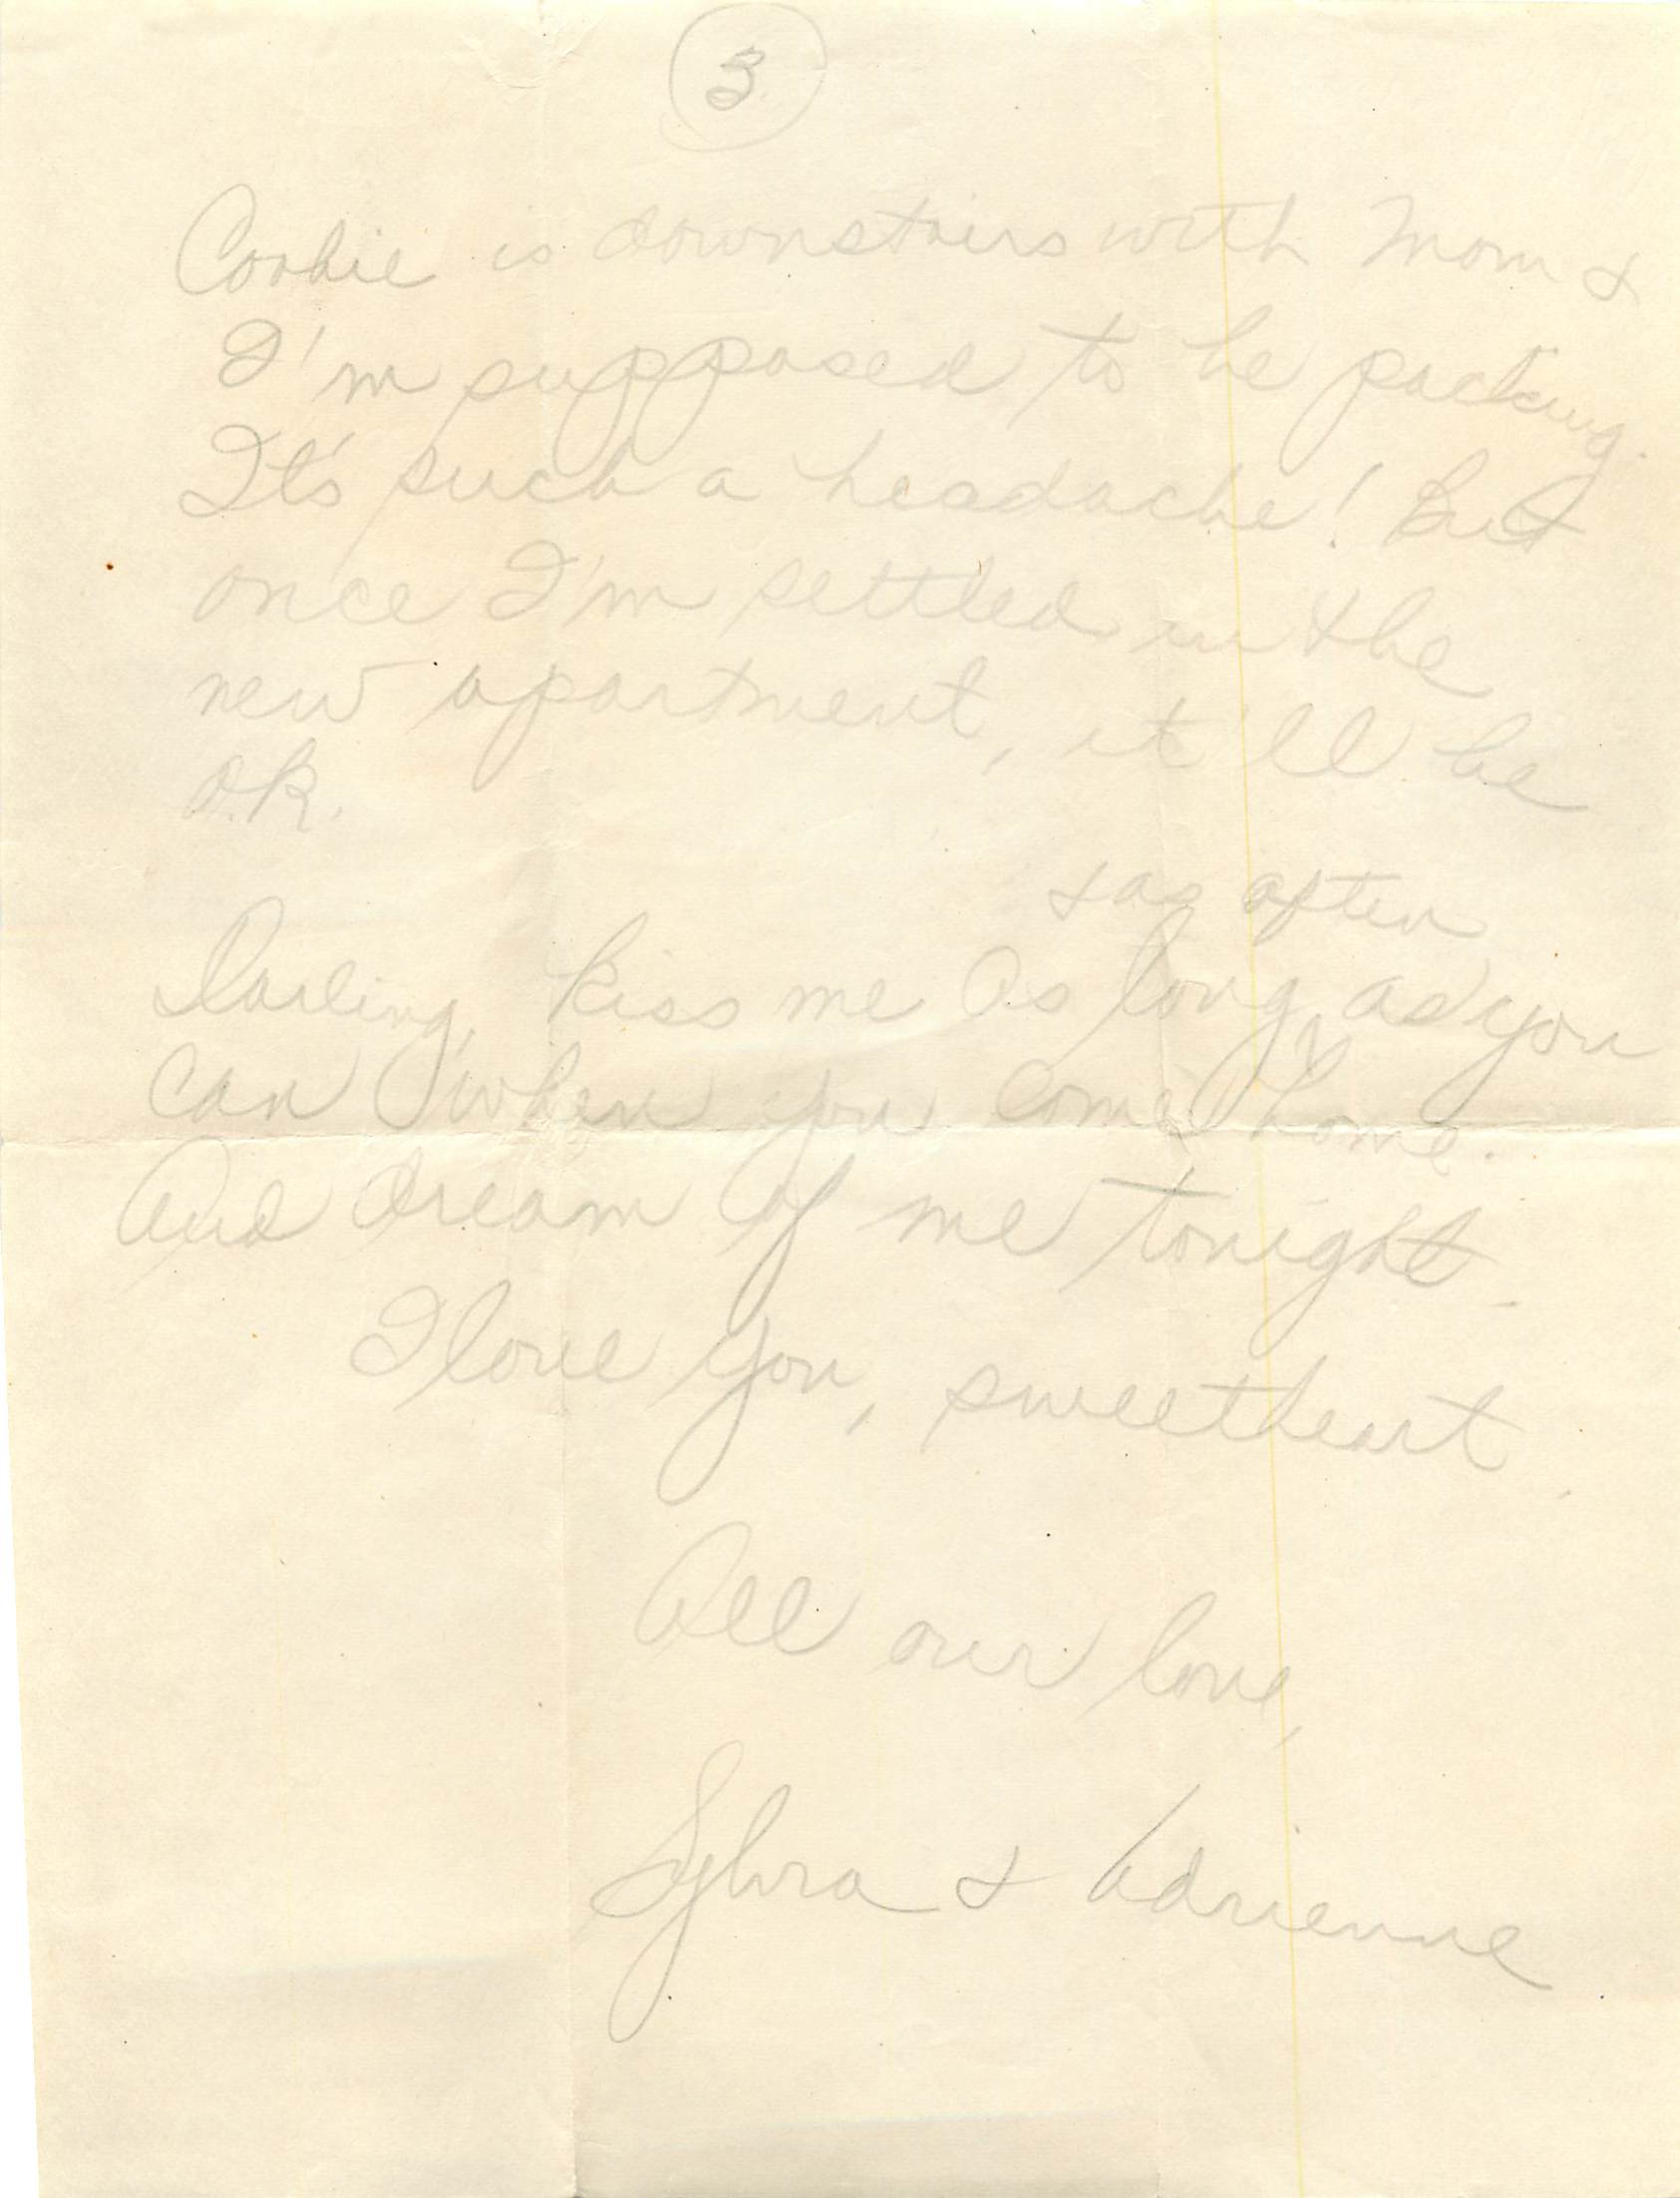 3
Cookie is downstairs with Mom &
I'm supposed to be packing.
It's such a headache! But
once I'm settled in the
new apartment, it'll be
O.K.
& as often
Darling, kiss me as long as you
can when you come home.
And dream of me tonight.
I love you, sweetheart.
All our love,
Sylvia & Adrienne